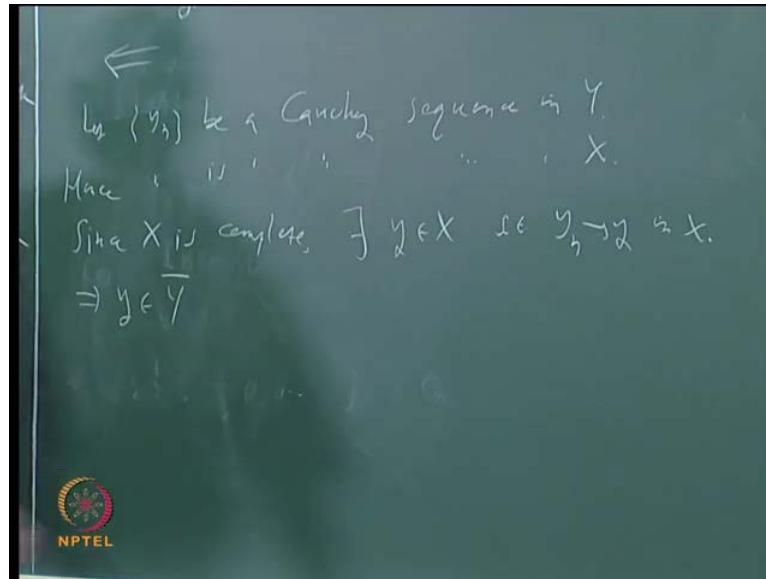 ⇐
Let {yₙ} be a Cauchy sequence in Y.
Hence " is " " " " X.
Since X is complete, ∃ y ∈ X s.t yₙ → y in X.
⇒ y ∈ Y̅
NPTEL